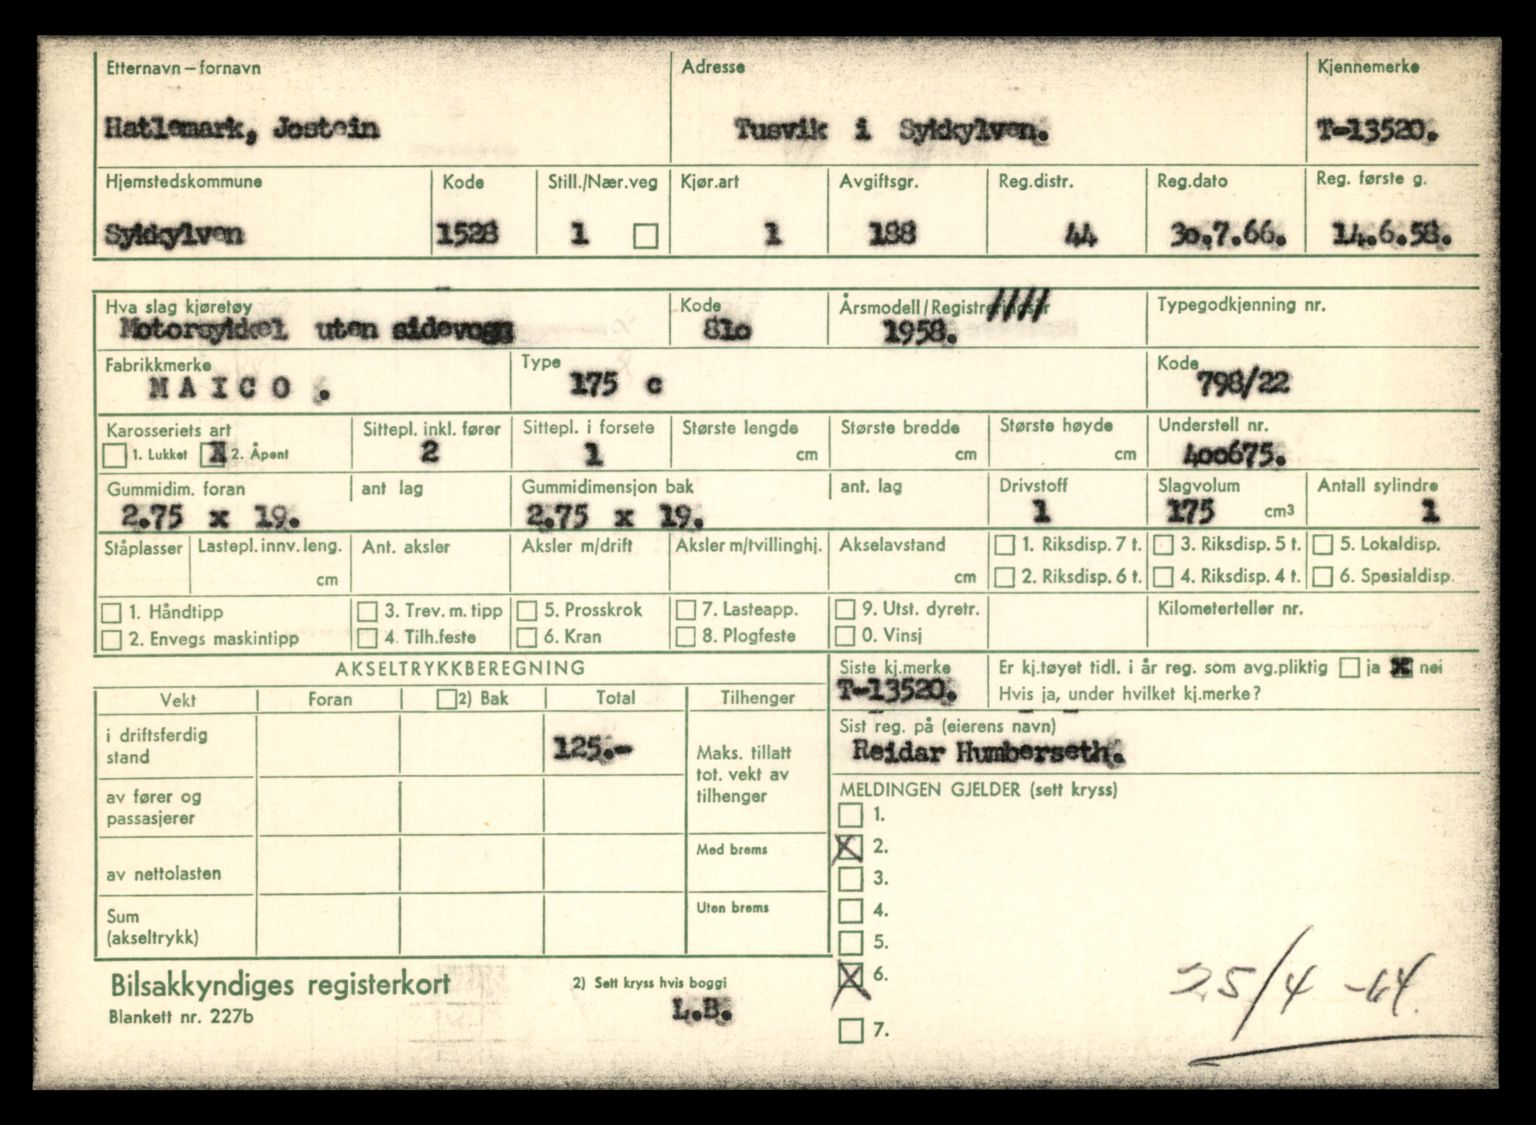 Etternavn – fornavn Adresse Kjennemerke
Hatlemark, Jostein Tusvik i Sykkylven. T-13520.
Hjemstedskommune Kode Still./Nær.veg Kjør.art Avgiftsgr. Reg.distr. Reg.dato Reg. første g.
Sykkylven 1528 1 1 188 44 30.7.66. 14.6.58.
Hva slag kjøretøy Kode Årsmodell/Registreringsår Typegodkjenning nr.
Motorsykkel uten sidevogn 810 1958.
Fabrikkmerke Type Kode
MAICO. 175 c 798/22
Karosseriets art Sittepl. inkl. fører Sittepl. i forsete Største lengde Største bredde Største høyde Understell nr.
1. Lukket X 2. Åpent 2 1 cm cm cm 400675.
Gummidim. foran ant lag Gummidimensjon bak ant. lag Drivstoff Slagvolum Antall sylindre
2.75 x 19. 2.75 x 19. 1 175 cm3 1
Ståplasser Lastepl. innv. leng. Ant. aksler Aksler m/drift Aksler m/tvillinghj. Akselavstand 1. Riksdisp. 7 t. 3. Riksdisp. 5 t. 5. Lokaldisp.
cm cm 2. Riksdisp. 6 t. 4. Riksdisp. 4 t. 6. Spesialdisp.
1. Håndtipp 3. Trev. m. tipp 5. Prosskrok 7. Lasteapp. 9. Utst. dyretr. Kilometerteller nr.
2. Envegs maskintipp 4. Tilh.feste 6. Kran 8. Plogfeste 0. Vinsj
AKSELTRYKKBEREGNING Siste kj.merke Er kj.tøyet tidl. i år reg. som avg.pliktig ja X nei
T-13520. Hvis ja, under hvilket kj.merke?
Vekt Foran 2) Bak Total Tilhenger
Sist reg. på (eierens navn)
i driftsferdig stand 125.- Reidar Humberseth.
Maks. tillatt tot. vekt av tilhenger
MELDINGEN GJELDER (sett kryss)
av fører og passasjerer 1.
Med brems X 2.
av nettolasten 3.
Uten brems 4.
Sum (akseltrykk) 5.
Bilsakkyndiges registerkort 2) Sett kryss hvis boggi X 6.
25/4 -64.
Blankett nr. 227b L.B. 7.